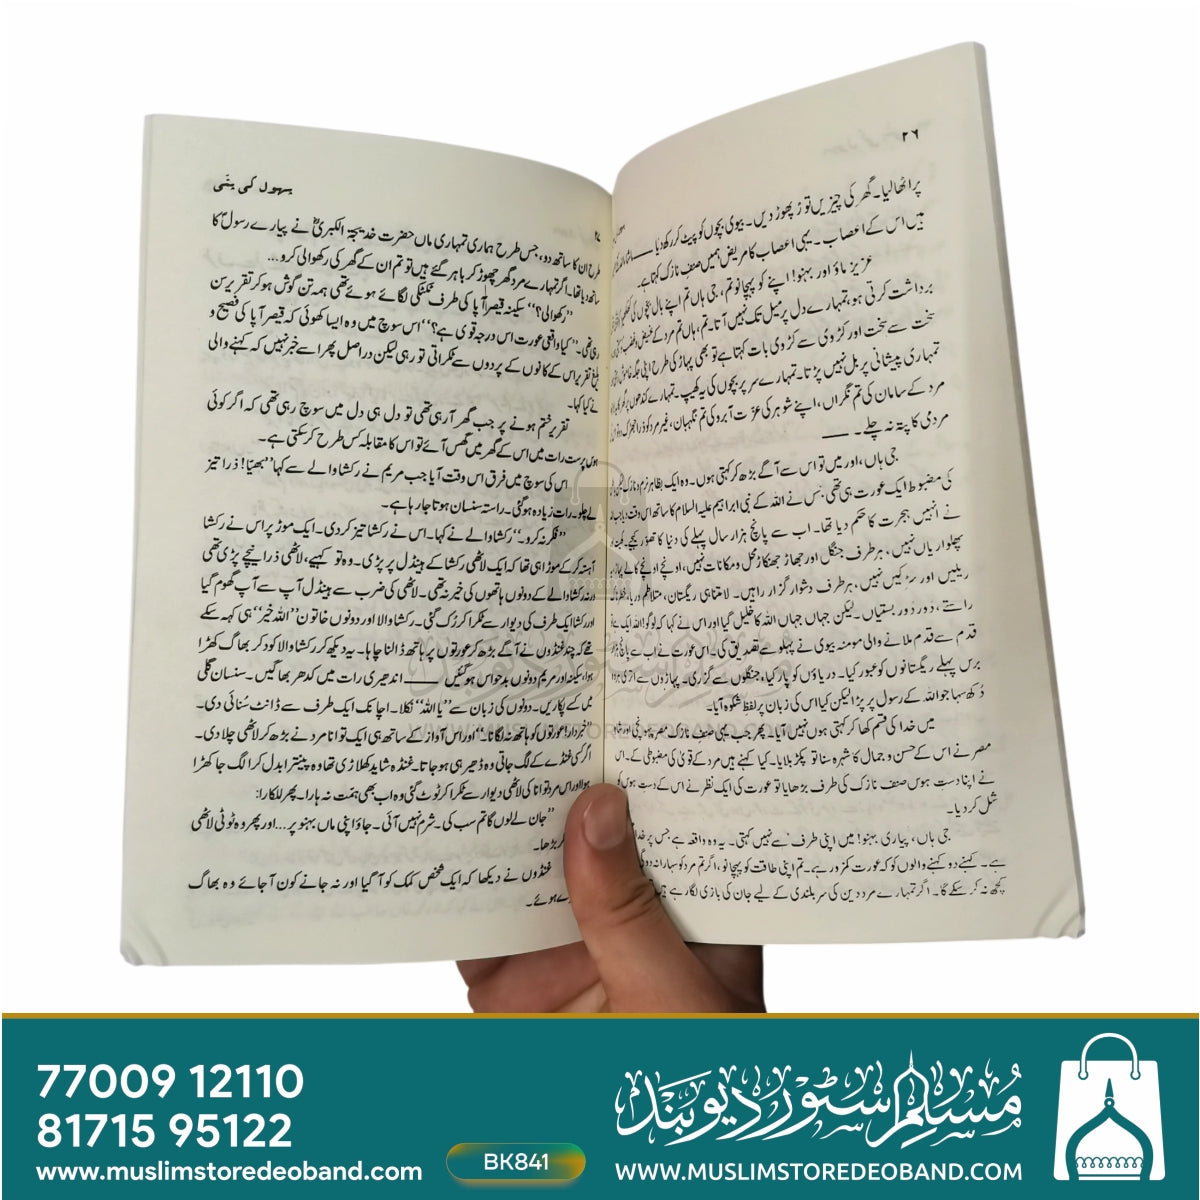 ۲۶
پر اٹھا لیا۔ گھر کی چیزیں توڑ پھوڑ دیں۔ بیوی بچوں کو پیٹ کر رکھ دیا
ہیں اس کے اعصاب۔ یہی اعصاب کا مریض ہمیں صنف نازک کہتا ہے۔
عزیز ماؤ اور بہنو! اپنے کو پہچانو تم، جی ہاں تم اپنے بال بچوں کی
برداشت کرتی ہو، تمہارے دل پر میل تک نہیں آتا۔ تم، ہاں تم مرد کے غیض و غضب
سخت سے سخت اور کڑوی سے کڑوی بات کہتا ہے تو بھی پہاڑ کی طرح اپنی جگہ
تمہاری پیشانی پر بل نہیں پڑتا۔ تمہارے سر پر بچوں کی یہ کھیپ۔ تمہارے کندھوں پر
مرد کے سامان کی تم نگراں، اپنے شوہر کی عزّت آبرو کی تم نگہبان، غیر مرد کو ذرا جھڑک دو
مردمی کا پتہ نہ چلے۔ ——
جی ہاں، اور میں تو اس سے آگے بڑھ کر کہتی ہوں۔ وہ ایک بظاہر نرم و نازک
کی مضبوط ایک عورت ہی تھی جس نے اللہ کے نبی ابراہیم علیہ السلام کا ساتھ اس وقت دیا جب
نے انہیں ہجرت کا حکم دیا تھا۔ اب سے پانچ ہزار سال پہلے کی دنیا کا تصوّر کیجیے۔
پھلواریاں نہیں، ہر طرف جنگل اور جھاڑ جھنکاڑ محل و مکانات نہیں، اونچے اونچے کالے پہاڑ
ریلیں اور سڑکیں نہیں، ہر طرف دشوار گزار راہیں۔ لامتناہی ریگستان، متلاطم دریا،
راستے، دُور دُور بستیاں۔ لیکن جہاں جہاں اللہ کا خلیل گیا اور اس نے کہا کہ لوگو! اللہ ایک ہے
قدم سے قدم ملانے والی مومنہ بیوی نے پہلو سے تصدیق کی۔ اس عورت نے اب سے پانچ ہزار
برس پہلے ریگستانوں کو عبور کیا۔ دریاؤں کو پار کیا، جنگلوں سے گزری۔ پہاڑوں سے اتری
دُکھ سہا جو اللہ کے رسول پر پڑا لیکن کیا اس کی زبان پر لفظِ شکوہ آیا۔
میں خدا کی قسم کھا کر کہتی ہوں نہیں آیا۔ پھر جب یہی صنف نازک مصر پہونچی اور
مصر نے اس کے حسن و جمال کا شہرہ سنا تو پکڑ بلایا۔ کیا کہنے ہیں مرد کے قویٰ کی مضبوطی کے۔ اس
نے اپنا دست ہوس صنف نازک کی طرف بڑھایا تو عورت کی ایک نظر نے اس کے دست ہوس کو
شل کر دیا۔
جی ہاں، پیاری بہنو! میں اپنی طرف سے نہیں کہتی۔ یہ وہ واقعہ ہے جس پر خدا
ہے۔ کہنے دو کہنے والوں کو کہ عورت کمزور ہے۔ تم اپنی طاقت کو پہچانو، اگر تم مرد کو سہارا نہ دو گی
کچھ نہ کر سکے گا۔ اگر تمہارے مرد دین کی سربلندی کے لیے جان کی بازی لگا رہے ہیں
بہول کی بنّی
طرح ان کا ساتھ دو، جس طرح ہماری تمہاری ماں حضرت خدیجۃ الکبریٰؓ نے پیارے رسولؐ کا
ساتھ دیا تھا۔ اگر تمہارے مرد گھر چھوڑ کر باہر گئے ہیں تو تم ان کے گھر کی رکھوالی کرو...
”رکھوالی؟“ سکینہ قیصر آپا کی طرف ٹکٹکی لگائے ہوئے تھی ہمہ تن گوش ہو کر تقریر سن
رہی تھی۔ ”کیا واقعی عورت اس درجہ قوی ہے؟“ اس سوچ میں وہ ایسا کھوئی کہ قیصر آپا کی فصیح و
بلیغ تقریر اس کے کانوں کے پردوں سے ٹکراتی تو رہی لیکن دراصل پھر اسے خبر نہیں کہ کہنے والی
نے کیا کہا۔
تقریر ختم ہونے پر جب گھر آ رہی تھی تو دل ہی دل میں سوچ رہی تھی کہ اگر کوئی
ہوس پرست رات میں اس کے گھر میں گھس آئے تو اس کا مقابلہ کس طرح کر سکتی ہے۔
اس کی سوچ میں فرق اس وقت آیا جب مریم نے رکشا والے سے کہا ”بھیّا! ذرا تیز
لے چلو۔ رات زیادہ ہوگئی۔ راستہ سنسان ہوتا جا رہا ہے۔
”فکر نہ کرو۔“ رکشا والے نے کہا۔ اس نے رکشا تیز کر دی۔ ایک موڑ پر اس نے رکشا
آہستہ کر کے موڑا ہی تھا کہ ایک لاٹھی رکشا کے ہینڈل پر پڑی۔ وہ تو کہیے، لاٹھی ذرا نیچے پڑی تھی
ورنہ رکشا والے کے دونوں ہاتھوں کی خیر نہ تھی۔ لاٹھی کی ضرب سے ہینڈل آپ سے آپ گھوم گیا
اور رکشا ایک طرف کی دیوار سے ٹکرا کر رُک گئی۔ رکشا والا اور دونوں خاتون ”اللہ خیر“ ہی کہہ سکے
تھے کہ چند غنڈوں نے آگے بڑھ کر عورتوں پر ہاتھ ڈالنا چاہا۔ یہ دیکھ کر رکشا والا کود کر بھاگ کھڑا
ہوا، سکینہ اور مریم دونوں بدحواس ہوگئیں —— اندھیری رات میں کدھر بھاگیں۔ سنسان گلی
میں کسے پکاریں۔ دونوں کی زبان سے ”یا اللہ“ نکلا۔ اچانک ایک طرف سے ڈانٹ سُنائی دی۔
”خبردار! عورتوں کو ہاتھ نہ لگانا۔“ اور اس آواز کے ساتھ ہی ایک توانا مرد نے بڑھ کر لاٹھی چلا دی۔
اگر کسی غنڈے کے لگ جاتی وہ ڈھیر ہی ہو جاتا۔ غنڈہ شاید کھلاڑی تھا وہ پینترا بدل کر الگ جا کھڑا
ہوا اور اس مرد توانا کی لاٹھی دیوار سے ٹکرا کر ٹوٹ گئی وہ اب بھی ہمت نہ ہارا۔ پھر للکارا:
”جان لے لوں گا تم سب کی۔ شرم نہیں آئی۔ جاؤ اپنی ماں بہنو پر... اور پھر وہ ٹوٹی لاٹھی
کر بڑھا۔
غنڈوں نے دیکھا کہ ایک شخص کمک کو آ گیا اور نہ جانے کون آ جائے وہ بھاگ
ہوئے۔
77009 12110
81715 95122
www.muslimstoredeoband.com
BK841
مسلم سٹور دیوبند
WWW.MUSLIMSTOREDEOBAND.COM